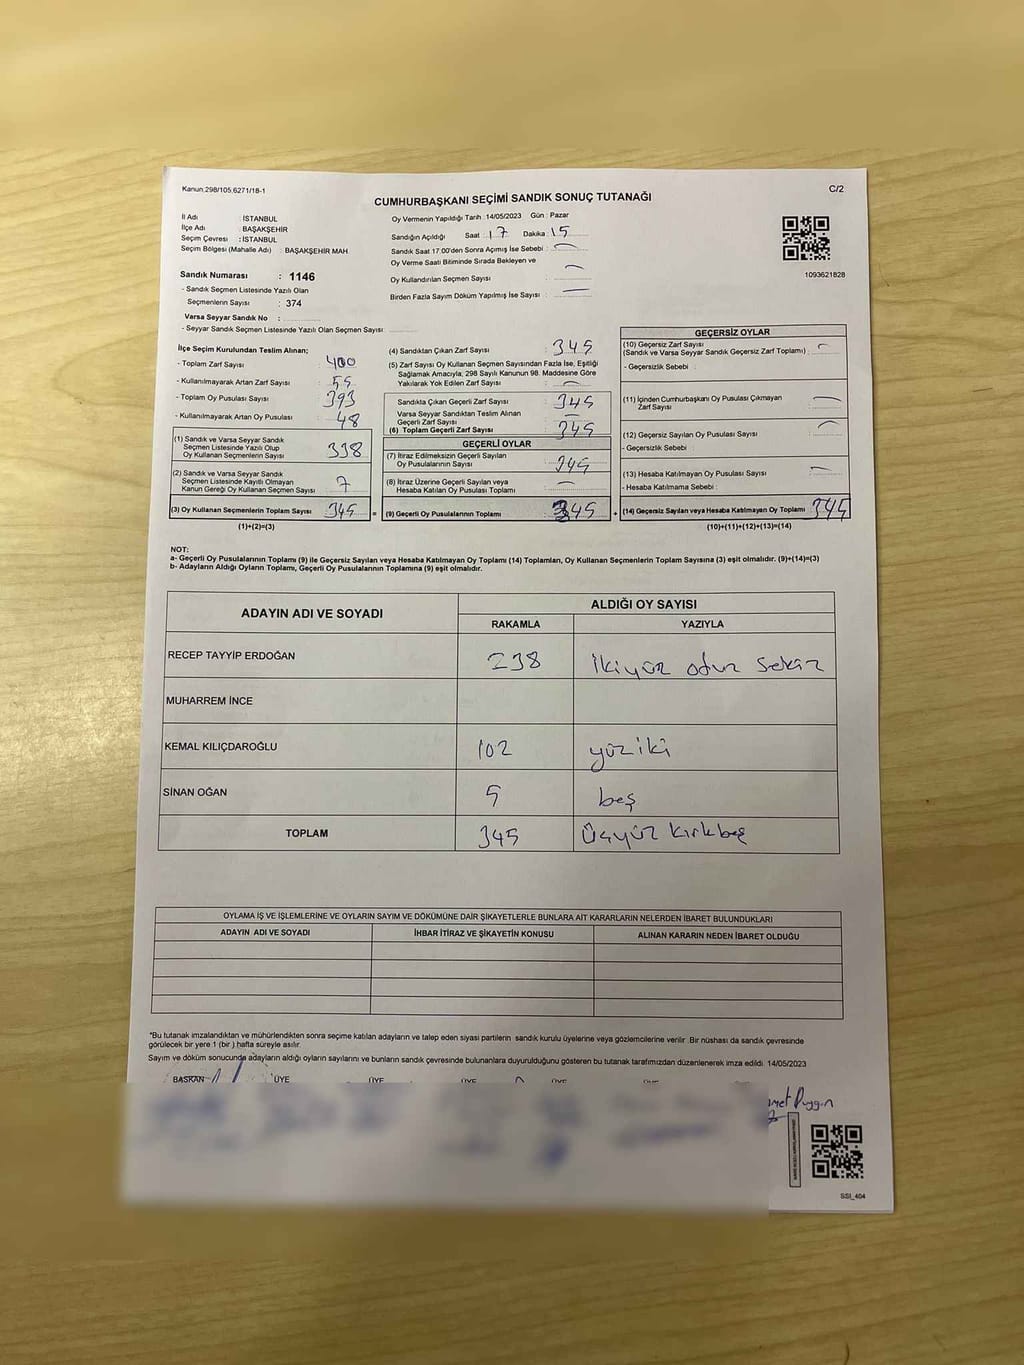 Kanun.298/105,6271/18-1
C/2
CUMHURBAŞKANI SEÇİMİ SANDIK SONUÇ TUTANAĞI
İl Adı : İSTANBUL
İlçe Adı : BAŞAKŞEHİR
Seçim Çevresi : İSTANBUL
Seçim Bölgesi (Mahalle Adı) : BAŞAKŞEHİR MAH
Sandık Numarası : 1146
- Sandık Seçmen Listesinde Yazılı Olan
Seçmenlerin Sayısı : 374
Varsa Seyyar Sandık No :
- Seyyar Sandık Seçmen Listesinde Yazılı Olan Seçmen Sayısı :
Oy Vermenin Yapıldığı Tarih :14/05/2023 Gün : Pazar
Sandığın Açıldığı Saat : 17 Dakika 15
Sandık Saat 17.00'den Sonra Açımış İse Sebebi :
Oy Verme Saati Bitiminde Sırada Bekleyen ve
Oy Kullandırılan Seçmen Sayısı :
Birden Fazla Sayım Döküm Yapılmış İse Sayısı :
1093621828
İlçe Seçim Kurulundan Teslim Alınan;
- Toplam Zarf Sayısı : 400
- Kullanılmayarak Artan Zarf Sayısı : 55
- Toplam Oy Pusulası Sayısı : 393
- Kullanılmayarak Artan Oy Pusulası : 48
(1) Sandık ve Varsa Seyyar Sandık
Seçmen Listesinde Yazılı Olup
Oy Kullanan Seçmenlerin Sayısı : 338
(2) Sandık ve Varsa Seyyar Sandık
Seçmen Listesinde Kayıtlı Olmayan
Kanun Gereği Oy Kullanan Seçmen Sayısı : 7
(3) Oy Kullanan Seçmenlerin Toplam Sayısı : 345 =
(1)+(2)=(3)
(4) Sandıktan Çıkan Zarf Sayısı : 345
(5) Zarf Sayısı Oy Kullanan Seçmen Sayısından Fazla İse, Eşitliği
Sağlamak Amacıyla; 298 Sayılı Kanunun 98. Maddesine Göre
Yakılarak Yok Edilen Zarf Sayısı :
Sandıkta Çıkan Geçerli Zarf Sayısı : 345
Varsa Seyyar Sandıktan Teslim Alınan
Geçerli Zarf Sayısı :
(6) Toplam Geçerli Zarf Sayısı : 345
GEÇERLİ OYLAR
(7) İtiraz Edilmeksizin Geçerli Sayılan
Oy Pusulalarının Sayısı : 345
(8) İtiraz Üzerine Geçerli Sayılan veya
Hesaba Katılan Oy Pusulası Toplamı :
(9) Geçerli Oy Pusulalarının Toplamı : 345 +
GEÇERSİZ OYLAR
(10) Geçersiz Zarf Sayısı
(Sandık ve Varsa Seyyar Sandık Geçersiz Zarf Toplamı) :
- Geçersizlik Sebebi :
(11) İçinden Cumhurbaşkanı Oy Pusulası Çıkmayan
Zarf Sayısı :
(12) Geçersiz Sayılan Oy Pusulası Sayısı :
- Geçersizlik Sebebi :
(13) Hesaba Katılmayan Oy Pusulası Sayısı :
- Hesaba Katılmama Sebebi :
(14) Geçersiz Sayılan veya Hesaba Katılmayan Oy Toplamı : 345
(10)+(11)+(12)+(13)=(14)
NOT:
a- Geçerli Oy Pusulalarının Toplamı (9) ile Geçersiz Sayılan veya Hesaba Katılmayan Oy Toplamı (14) Toplamları, Oy Kullanan Seçmenlerin Toplam Sayısına (3) eşit olmalıdır. (9)+(14)=(3)
b- Adayların Aldığı Oyların Toplamı, Geçerli Oy Pusulalarının Toplamına (9) eşit olmalıdır.
ADAYIN ADI VE SOYADI ALDIĞI OY SAYISI
RAKAMLA YAZIYLA
RECEP TAYYİP ERDOĞAN 238 ikiyüz otuz sekiz
MUHARREM İNCE
KEMAL KILIÇDAROĞLU 102 yüziki
SİNAN OĞAN 5 beş
TOPLAM 345 Üçyüz kırkbeş
OYLAMA İŞ VE İŞLEMLERİNE VE OYLARIN SAYIM VE DÖKÜMÜNE DAİR ŞİKAYETLERLE BUNLARA AİT KARARLARIN NELERDEN İBARET BULUNDUKLARI
ADAYIN ADI VE SOYADI İHBAR İTİRAZ VE ŞİKAYETİN KONUSU ALINAN KARARIN NEDEN İBARET OLDUĞU
*Bu tutanak imzalandıktan ve mühürlendikten sonra seçime katılan adayların ve talep eden siyasi partilerin sandık kurulu üyelerine veya gözlemcilerine verilir. Bir nüshası da sandık çevresinde
görülecek bir yere 1 (bir ) hafta süreyle asılır.
Sayım ve döküm sonucunda adayların aldığı oyların sayılarını ve bunların sandık çevresinde bulunanlara duyurulduğunu gösteren bu tutanak tarafımızdan düzenlenerek imza edildi. 14/05/2023
BAŞKAN ÜYE ÜYE ÜYE ÜYE ÜYE
SSI_404